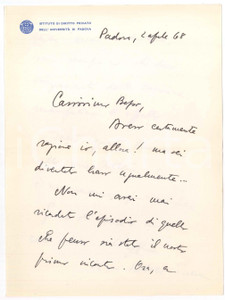 ISTITUTO DI DIRITTO PRIVATO
DELL'UNIVERSITÀ DI PADOVA
Padova, 2 aprile 68
Carissimo
Avevo certamente
ragione io, allora! ma sei
diventato bravo ugualmente...
Non mi avevi mai
ricordato l'episodio di quello
che penso sia stato il nostro
primo incontro. Ora, a